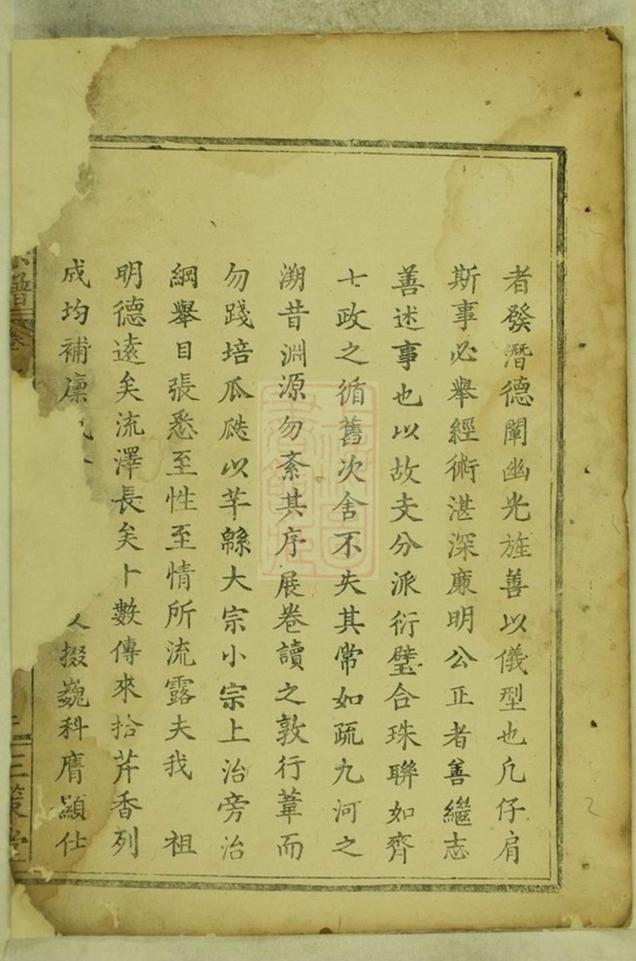 者發潛德闡幽光旌善以儀型也凢仔肩
斯事必舉經術湛深廉明公正者善繼志
善述事也以故支分派衍璧合珠聯如齊
七政之循舊次舍不失其常如疏九河之
溯昔淵源勿紊其序展卷讀之敦行葦而
勿踐培瓜瓞以芊緜大宗小宗上治旁治
綱舉目張悉至性至情所流露夫我 祖
明德遠矣流澤長矣卜數傳來拾芹香列
成均補廩 掇巍科膺顯仕
譜 三策堂